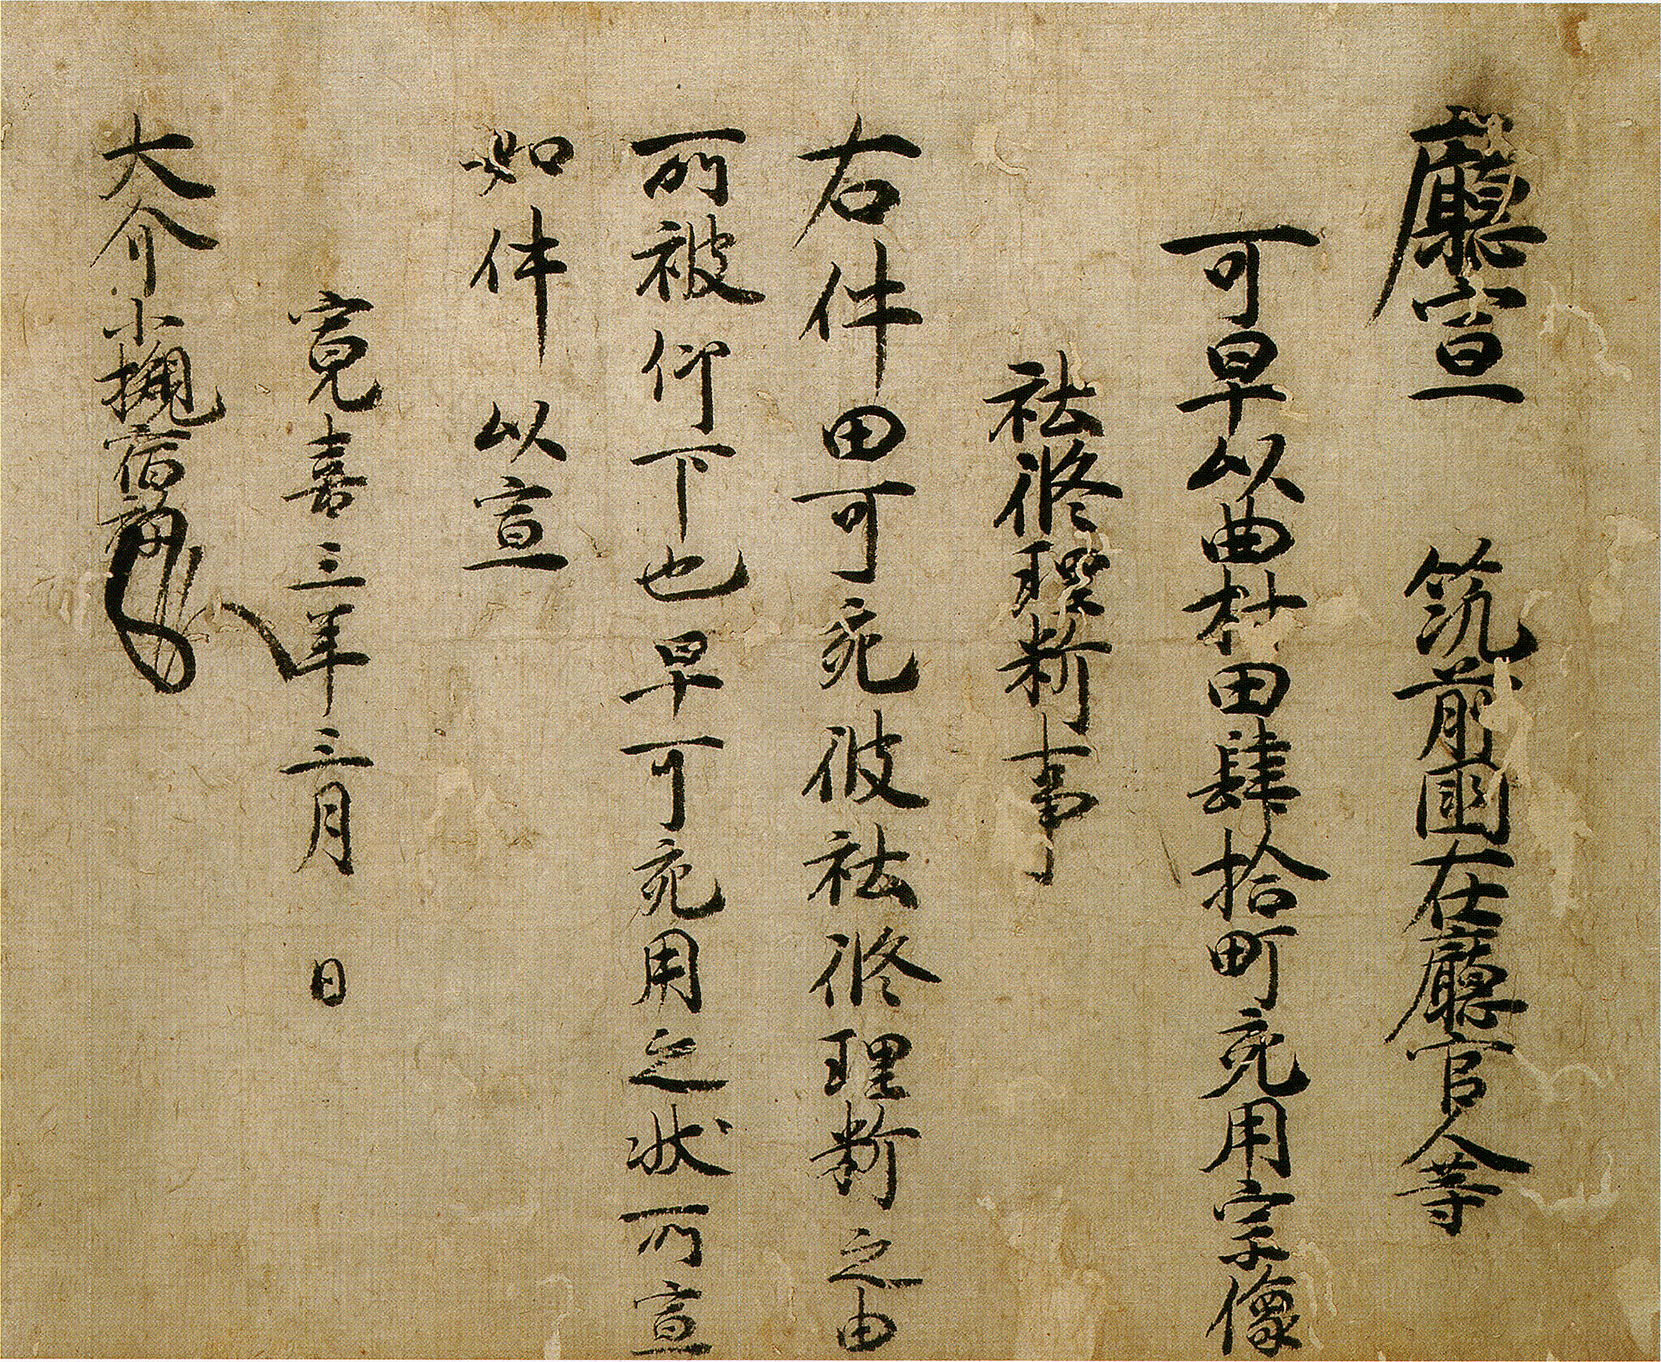 廳宣　筑前國在廳官人等
可早以曲村田肆拾町宛用宗像
社修理料事
右件田可宛彼社修理料之由
所被仰下也早可宛用之状所宣
如件以宣
寛喜三年三月　日
大介小槻宿祢